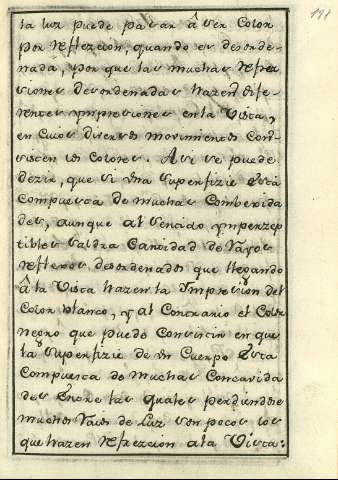 191
la luz puede pasar â ser Color
por reflezcion, quando es desorde-
nada, y por que las muchas refle-
xiones desordenadas hazen dife-
rentes ympresiones en la Vista,
en cuios diversos movimientos Con-
sisten los colores. Asi se puede
dezir, que si una superfizie esta
compuesta de muchas Combexida
des, aunque al sentido ymperzep-
tibles saldra Cantidad de rayos
reflexos desordenados que llegando
â la Vista hazen la Impresion del
Color blanco, y al Contrario el Color
negro que puede Consistir en que
la superfizie de un Cuerpo esta
Compuesta de muchas Concavida
des Entre las quales perdiendose
muchos raios de Luz son pocos los
que hazen refrezcion a la Vista.